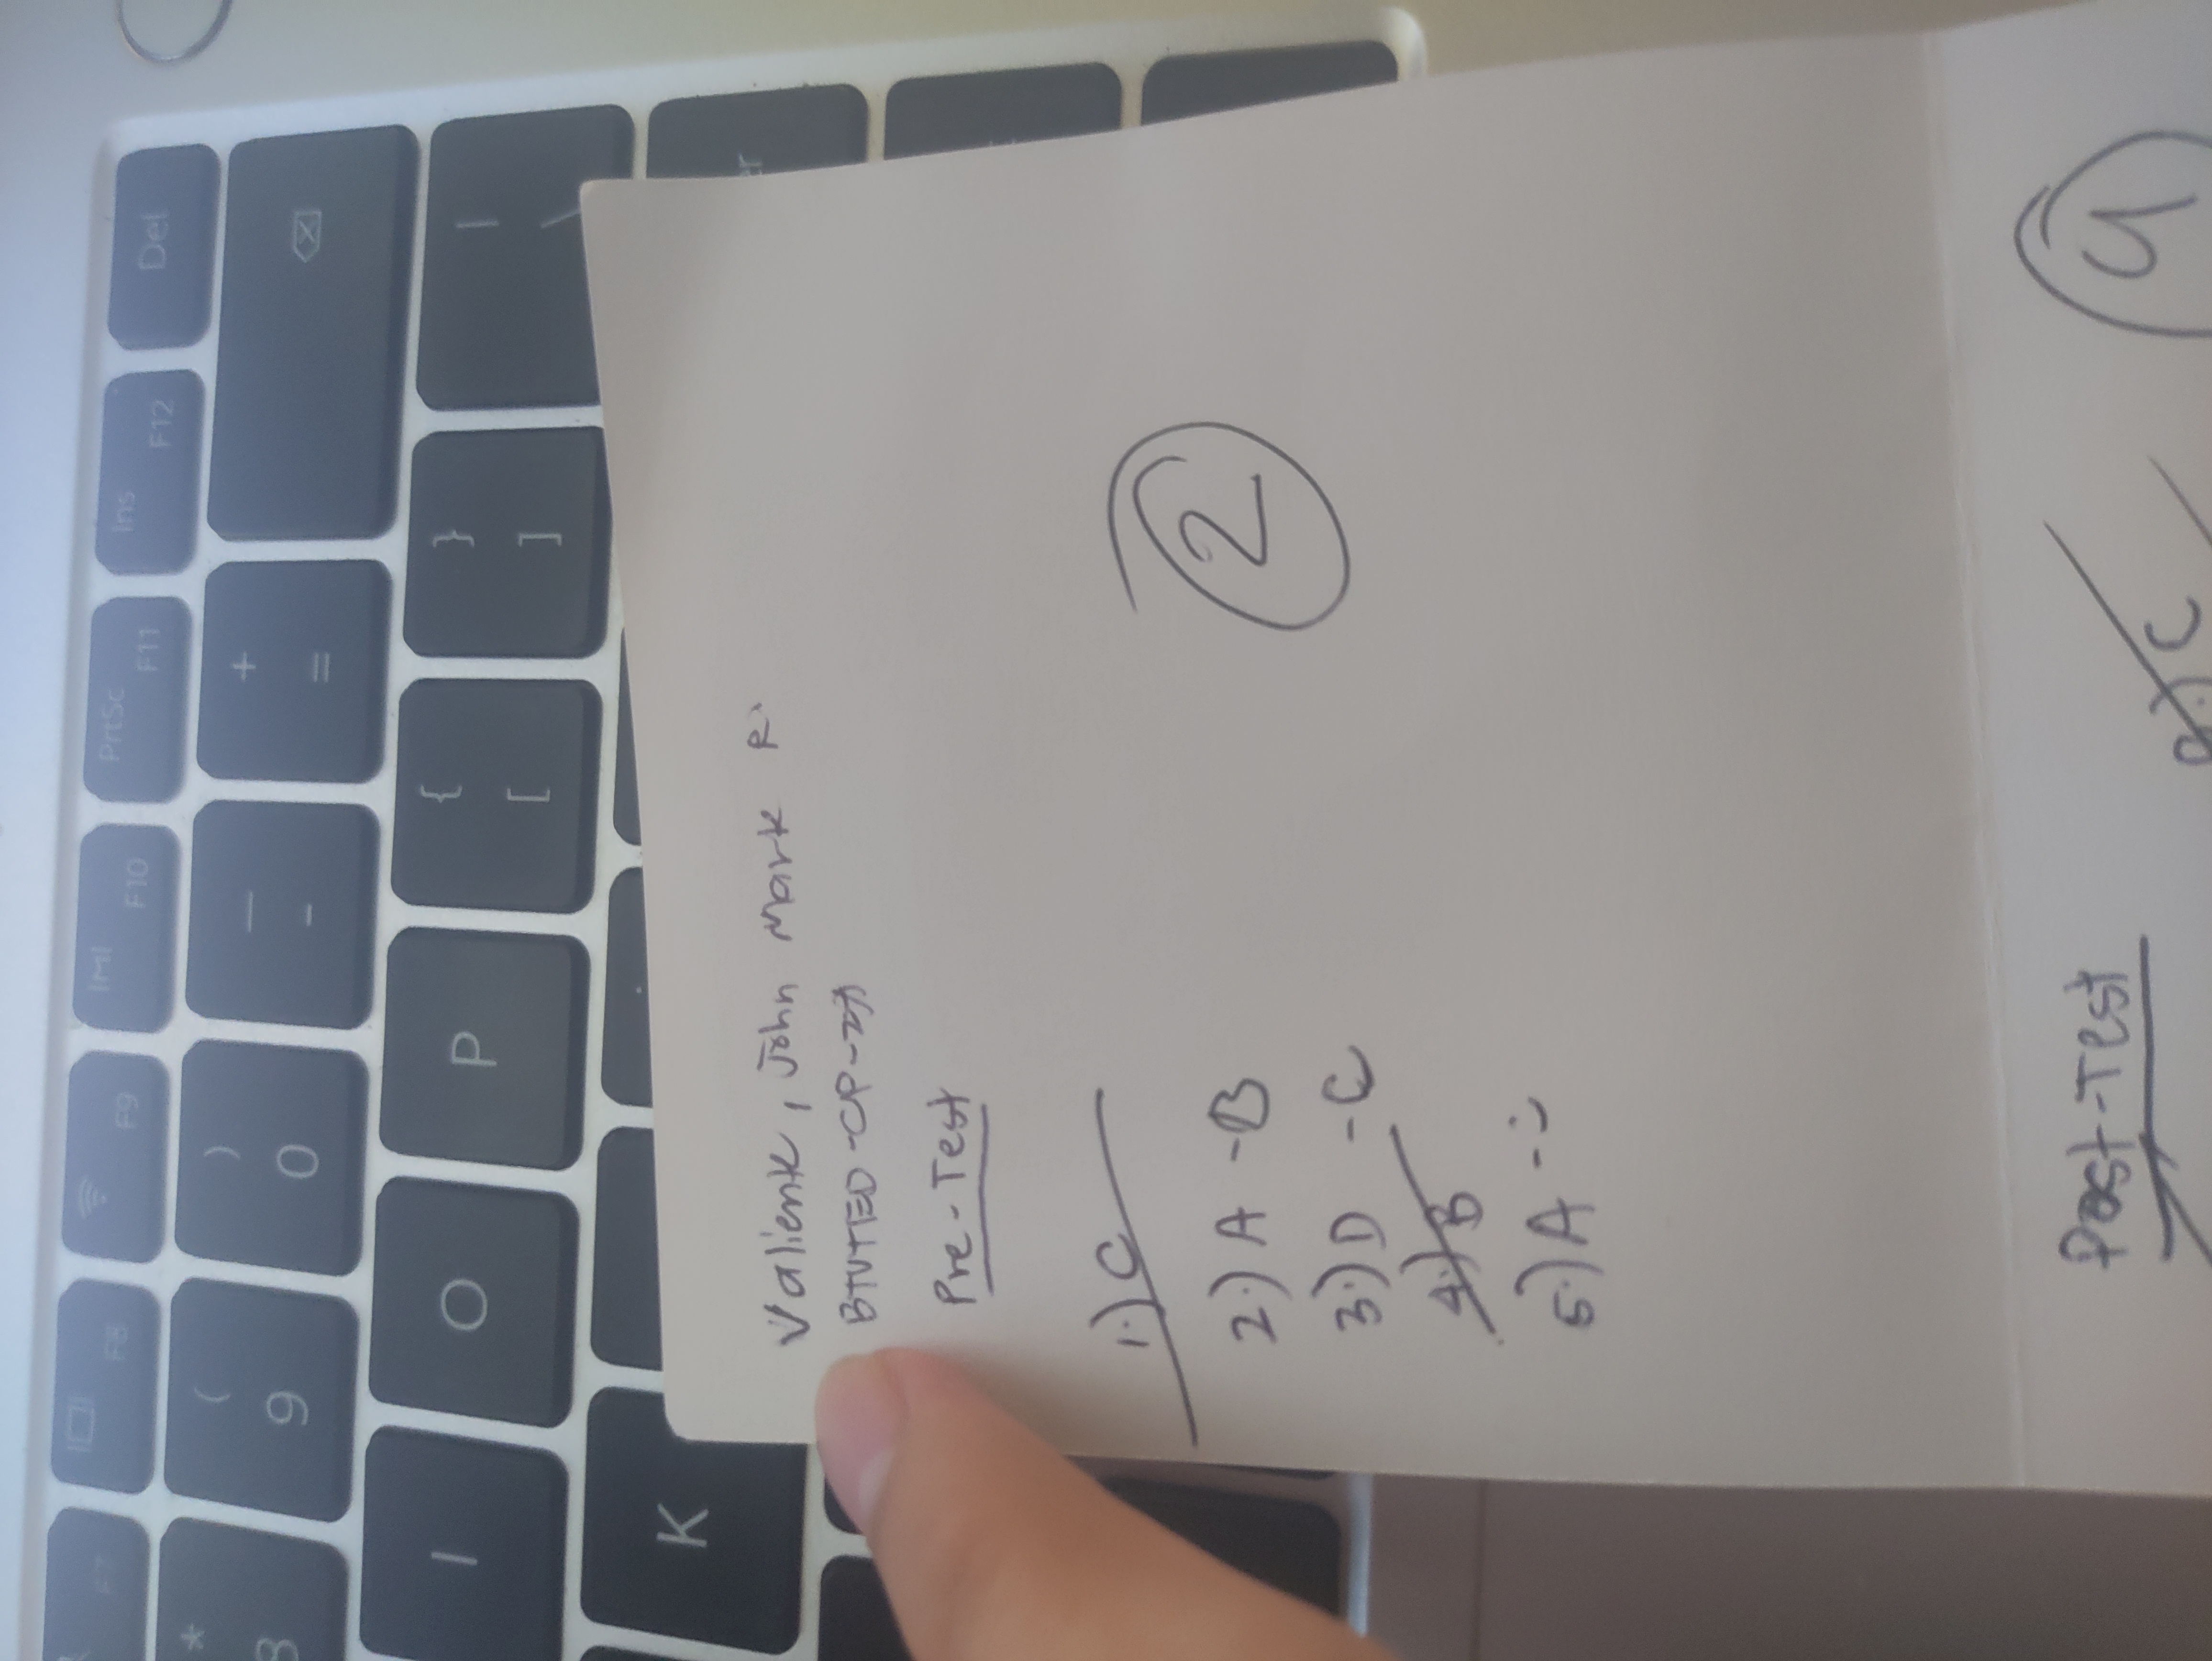 F7 F8 F9 F10 PrtSc F11 Ins F12 Del
* 8 ( 9 ) 0 — - + =
I O P { [ } ] | \
K
Valiente, John Mark R.
BTVTED-CP-2A
Pre-Test
1.) C
2.) A - B
3.) D - C
4.) B
5.) A - :)
2
Post-Test
8.) C
9